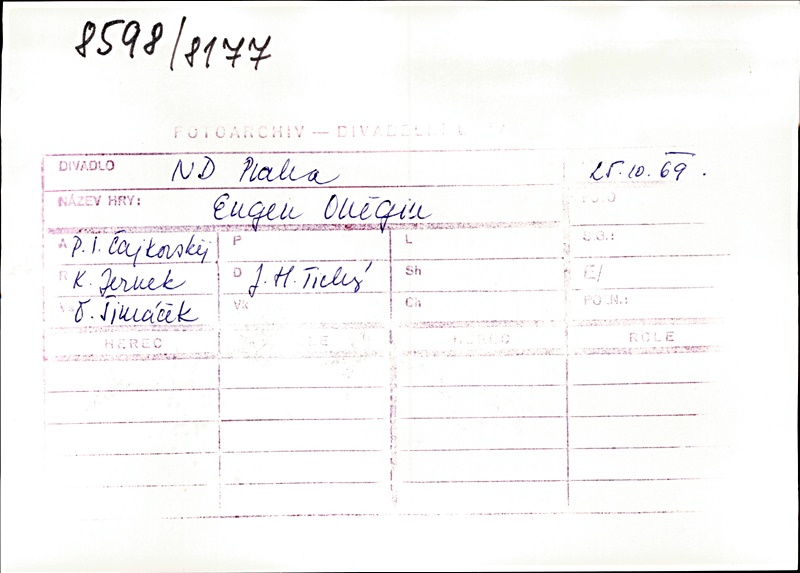 8598/8177
FOTOARCHIV — DIVADELNÍ
DIVADLO ND Praha 25.10.69.
NÁZEV HRY: Eugen Oněgin
A P. I. Čajkovskij P L
R K. Jernek D J. H. Tichý Sh E/
O. Šimáček Vk Ch
HEREC HEREC ROLE